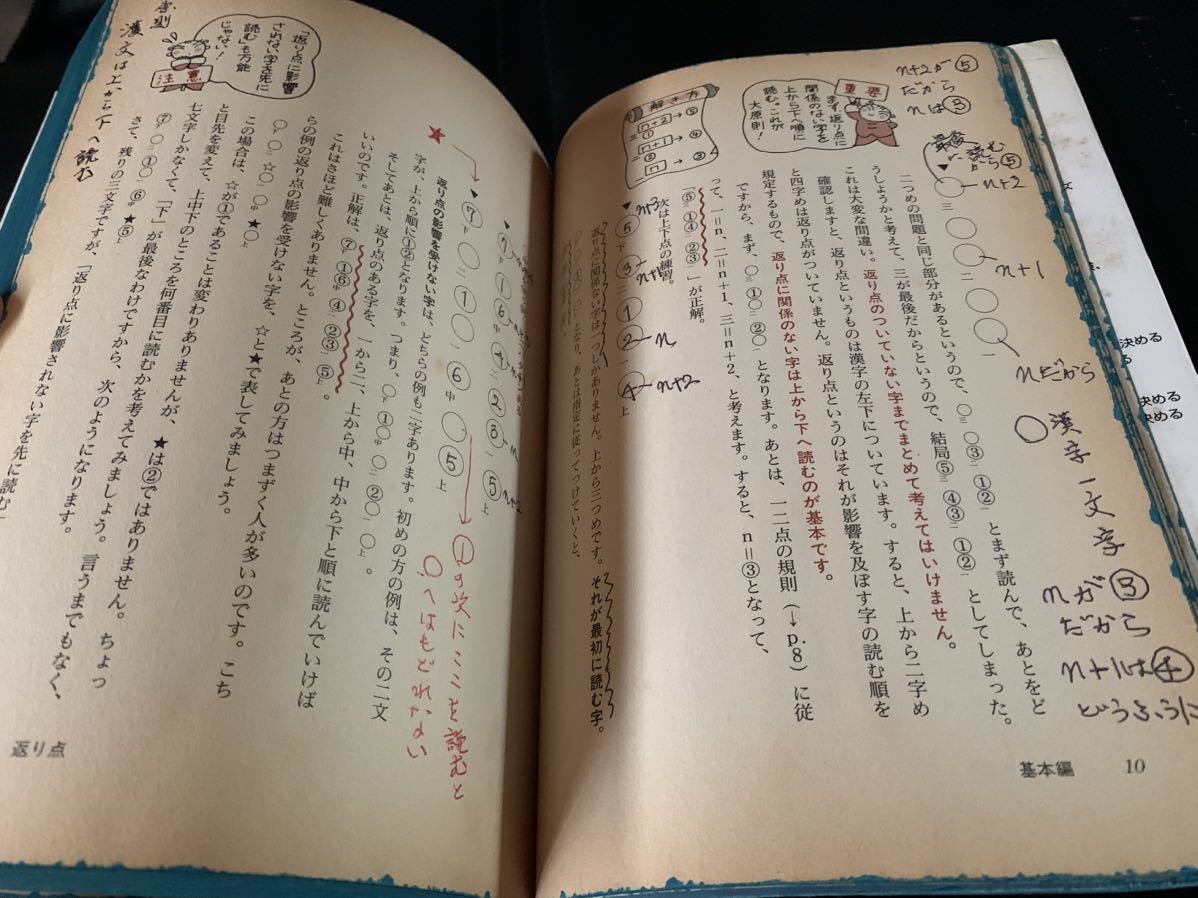 重要
まず返り点に
関係のない字を
上から下へ順に
読む。これが
大原則！
解き方
n+2 → ⑤
n+1 → ④
n → ③
n+2が⑤
だから
nは③
最後
に読む
から⑤
n+2
n+1
nだから
○漢字一文字
nが③
だから
n+1は④
どうふうに
▼○三○○二○○一
二つめの問題と同じ部分があるというので、○三③○二①②一とまず読んで、あとをど
うしようかと考えて、三が最後だからというので、結局⑤三③④二①②一としてしまった。
これは大変な間違い。返り点のついていない字までまとめて考えてはいけません。
確認しますと、返り点というものは漢字の左下についています。すると、上から二字め
と四字めは返り点がついていません。返り点というのはそれが影響を及ぼす字の読む順を
規定するもので、返り点に関係のない字は上から下へ読むのが基本です。
ですから、まず、○三①○二②○一となります。あとは、一二点の規則（→p.8）に従
って、一＝n、二＝n＋1、三＝n＋2、と考えます。すると、n＝③となって、
「⑤三①④二②③一」が正解。
次は上下点の練習。
▼⑤下③二①②一④上
n+1
n
n+2
返り点に関係ない字は一つしかありません。上から三つめです。それが最初に読む字。
となり、あとは指定に従ってつけていくと、
基本編 10
▼⑦下○二①○一⑥中○⑤上
★
返り点の影響を受けない字は、どちらの例も二字あります。初めの方の例は、その二文
字が、上から順に①②となります。つまり、○下①○中○二②○一○上。
そしてあとは、返り点のある字を、一から二、上から中、中から下と順に読んでいけば
いいのです。正解は、⑦下①⑥中④二②③一⑤上。
これはさほど難しくありません。ところが、あとの方はつまずく人が多いのです。こち
らの例の返り点の影響を受けない字を、☆と★で表してみましょう。
○下○二☆○一○中★○上
この場合は、☆が①であることは変わりありませんが、★は②ではありません。ちょっ
と目先を変えて、上中下のところを何番目に読むかを考えてみましょう。言うまでもなく、
七文字しかなくて、「下」が最後なわけですから、次のようになります。
⑦下○二①○一⑥中★⑤上
さて、残りの三文字ですが、「返り点に影響されない字を先に読む」
①の次にここを読むと
○へはもどれない
注意
「返り点に影響
されない字を先に
読む」も万能
じゃない！
漢文は上から下へ読む
返り点
決める
決める
決める